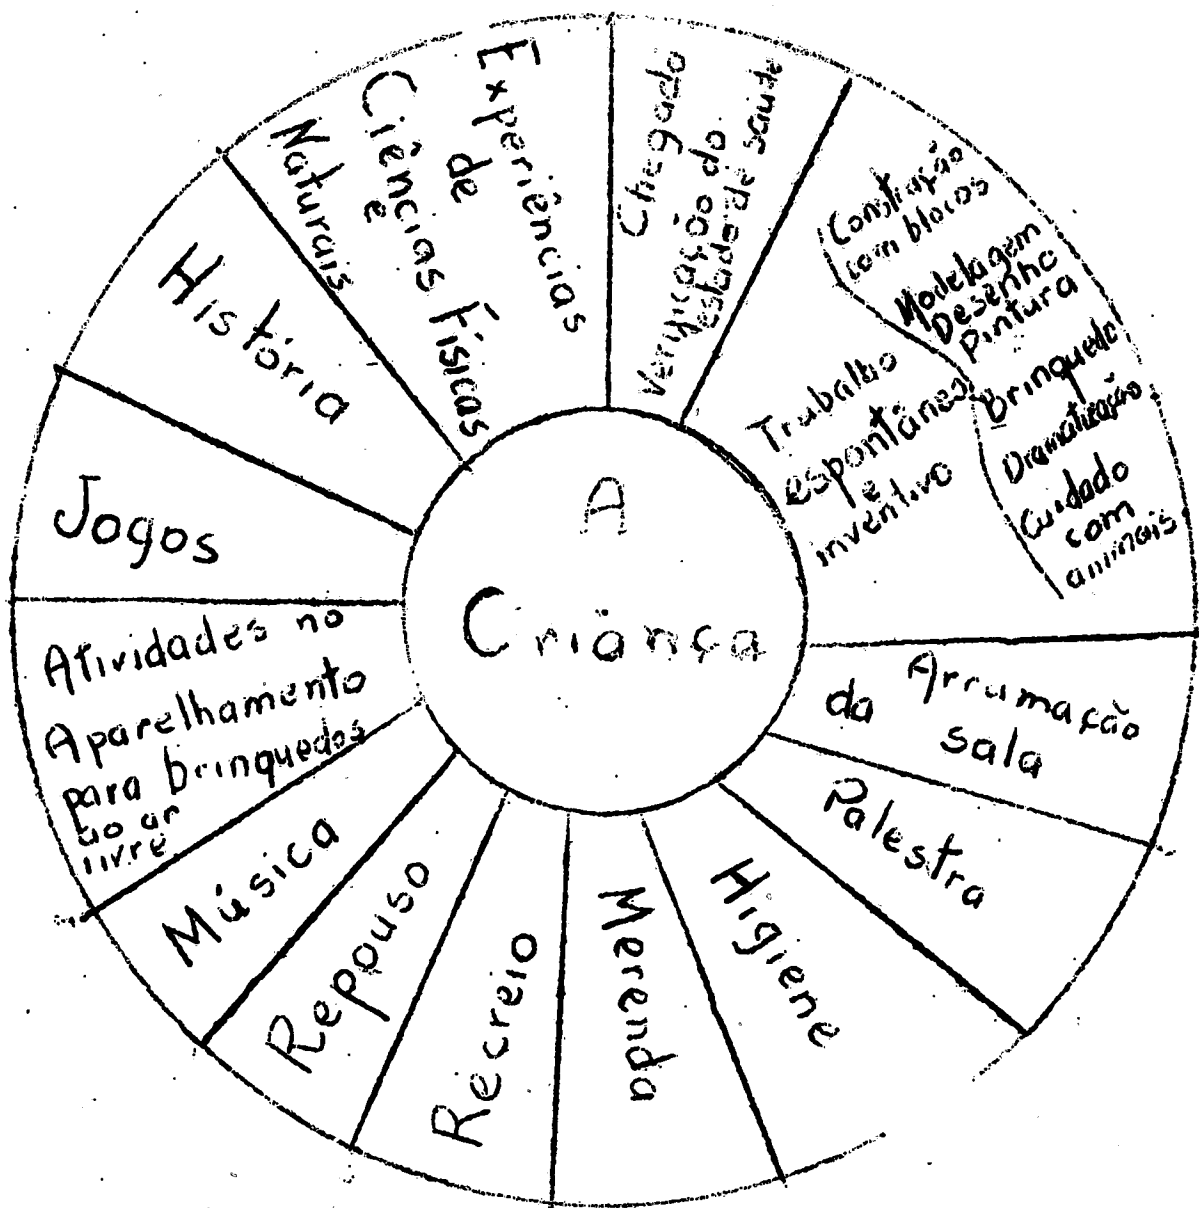 A
Criança
Chegado
Verificação do
estado de saúde
Trabalho
espontâneo
e
inventivo
Construção
com blocos
Modelagem
Desenho
Pintura
Brinquedo
Dramatização
Cuidado
com
animais
Arrumação
da sala
Palestra
Higiene
Merenda
Recreio
Repouso
Música
Atividades no
Aparelhamento
para brinquedos
ao ar
livre
Jogos
História
Experiências
de
Ciências Físicas
e
Naturais